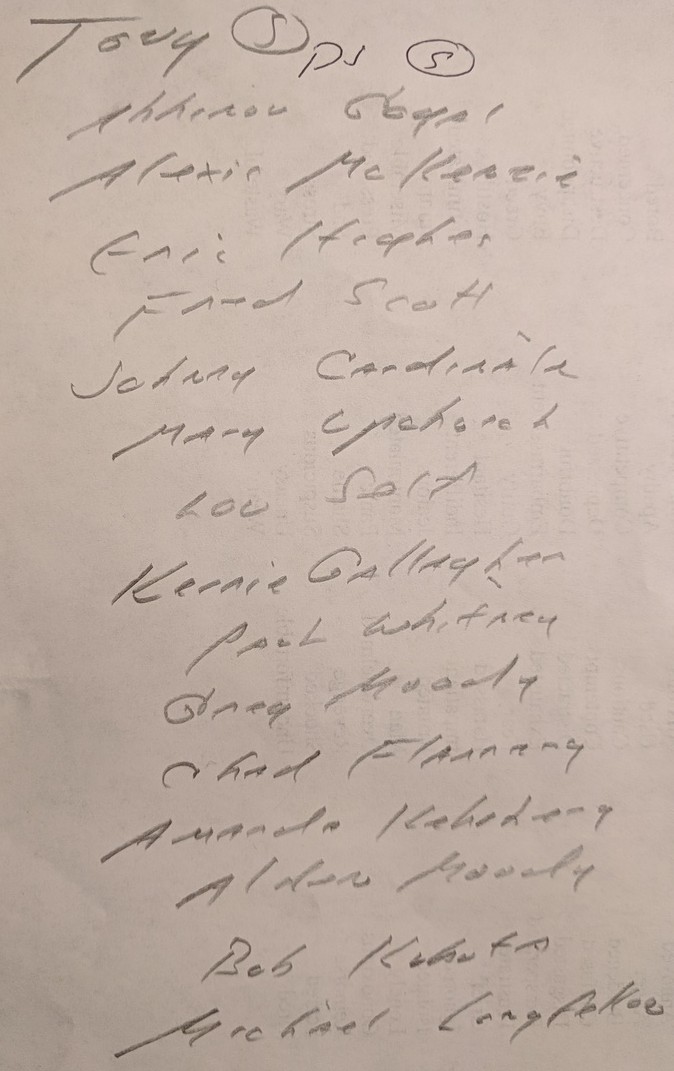 Tony (S) DJ (S)
Alexis McKenzie
Eric Hughes
Fred Scott
Johnny Cardinale
Mary Upchurch
Lou Solt
Kerrie Gallagher
Paul Whitney
Greg Moody
Chad Flannery
Amanda
Alden Moody
Bob Kubota
Michael Longfellow